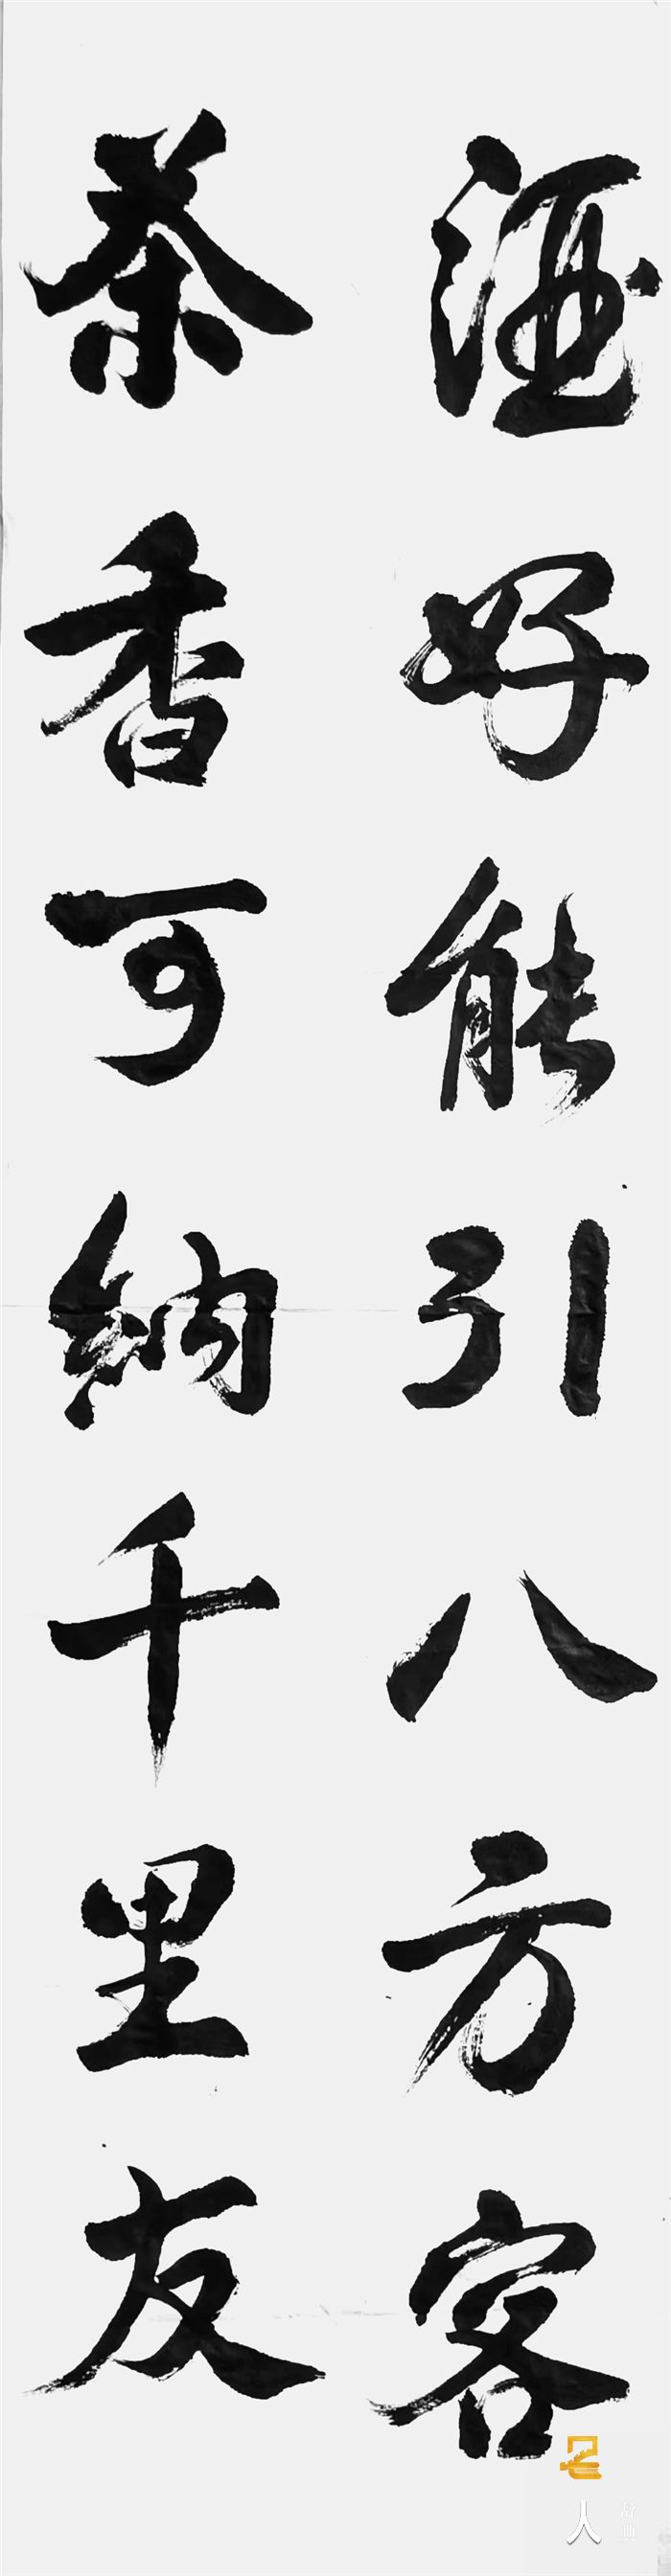 酒好能引八方客
茶香可納千里友